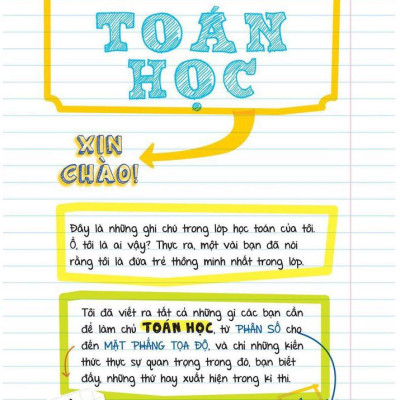 TOÁN
HỌC
XIN
CHÀO!
Đây là những ghi chú trong lớp học toán của tôi.
Ồ, tôi là ai vậy? Thực ra, một vài bạn đã nói
rằng tôi là đứa trẻ thông minh nhất trong lớp.
Tôi đã viết ra tất cả những gì các bạn cần
để làm chủ TOÁN HỌC, từ PHÂN SỐ cho
đến MẶT PHẲNG TỌA ĐỘ, và chỉ những kiến
thức thực sự quan trọng trong đó, bạn biết
đấy, những thứ hay xuất hiện trong kì thi.